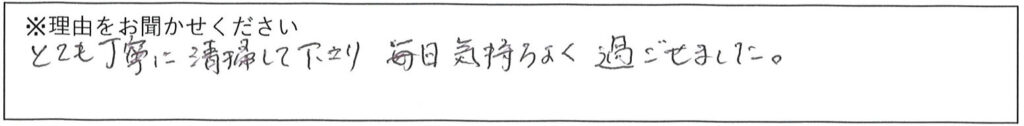 ※理由をお聞かせください
とても丁寧に清掃して下さり 毎日気持ちよく過ごせました。